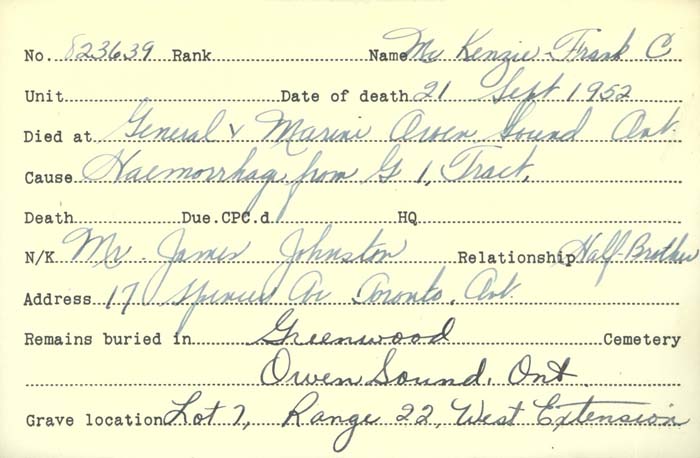 No. 823639 Rank Name Mc Kenzie - Frank C
Unit Date of death 21 Sept 1952
Died at General & Marine Owen Sound Ont.
Cause Haemorrhag from G 1, Tract,
Death Due.CPC.d HQ
N/K Mr. James Johnston Relationship Half-Brother
Address 17 Spencer Av Toronto, Ont.
Remains buried in Greenwood Cemetery
Owen Sound, Ont.
Grave location Lot 7, Range 22, West Extension